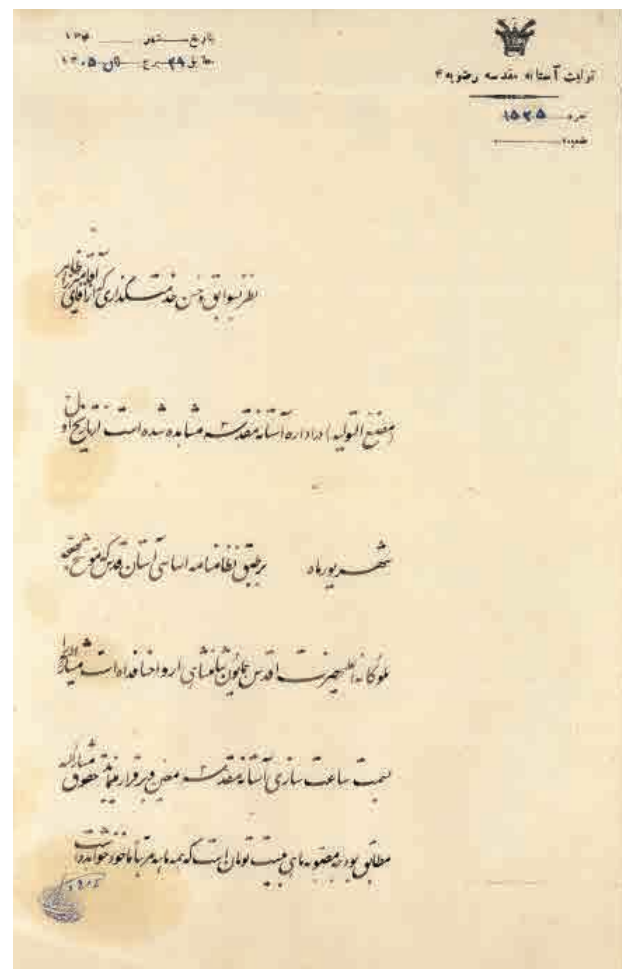 تولیت آستانه مقدسه رضویه ۴
نمره ۱۵۲۵
ضمیمه
بتاریخ شهر ۱۳۴
مطابق ۲۹ برج ۱۳۰۵
نظر بسوابق و حسن خدمتگذاری که از آقای آقا میرزا طاهر
(مفخم التولیه) در اداره آستانه مقدسه مشاهده شده است از تاریخ اول
شهریورماه برطبق نظامنامه اساسی آستان قدس که موشح بصحه
ملوکانه اعلیحضرت اقدس همایون شاهنشاهی ارواحنا فداه است مشارالیه را
بسمت ساعت سازی آستانه مقدسه معین و برقرار مینماید حقوق مشارالیه
مطابق بودجه مصوبه ماهی بیست تومان است که همه ماهه مرتباً ماخوذ خواهد داشت